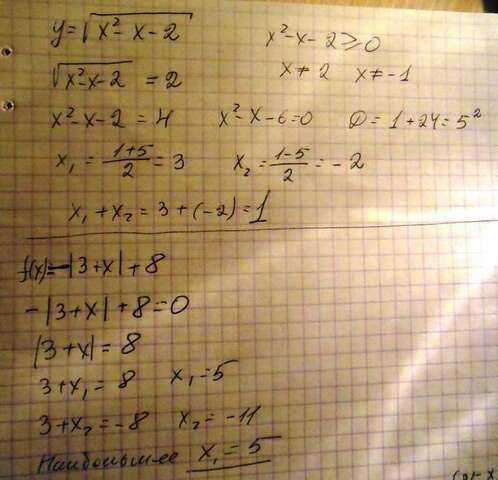 y = √x² - x - 2    x² - x - 2 ≥ 0
√x² - x - 2 = 2    x ≠ 2    x ≠ -1
x² - x - 2 = 4    x² - x - 6 = 0    D = 1 + 24 = 5²
x₁ = (1+5)/2 = 3    x₂ = (1-5)/2 = -2
x₁ + x₂ = 3 + (-2) = 1
f(x) = -|3+x| + 8
-|3+x| + 8 = 0
|3+x| = 8
3 + x₁ = 8    x₁ = 5
3 + x₂ = -8    x₂ = -11
Наибольшее x₁ = 5